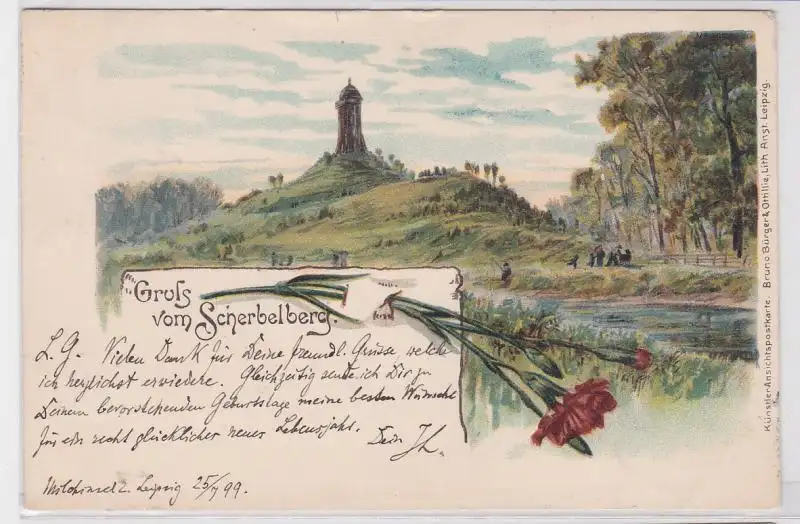 Gruss
vom Scherbelberg.
L. G. Vielen Dank für Deine freundl. Grüsse, welche
ich herzlichst erwiedere. Gleichzeitig sende ich Dir zu
Deinem bevorstehenden Geburtstage meine besten Wünsche
für ein recht glückliches neues Lebensjahr. Dein
Leipzig 25/ 99.
Künstler-Ansichtspostkarte. Bruno Bürger & Ottillie, Lith. Anst. Leipzig.